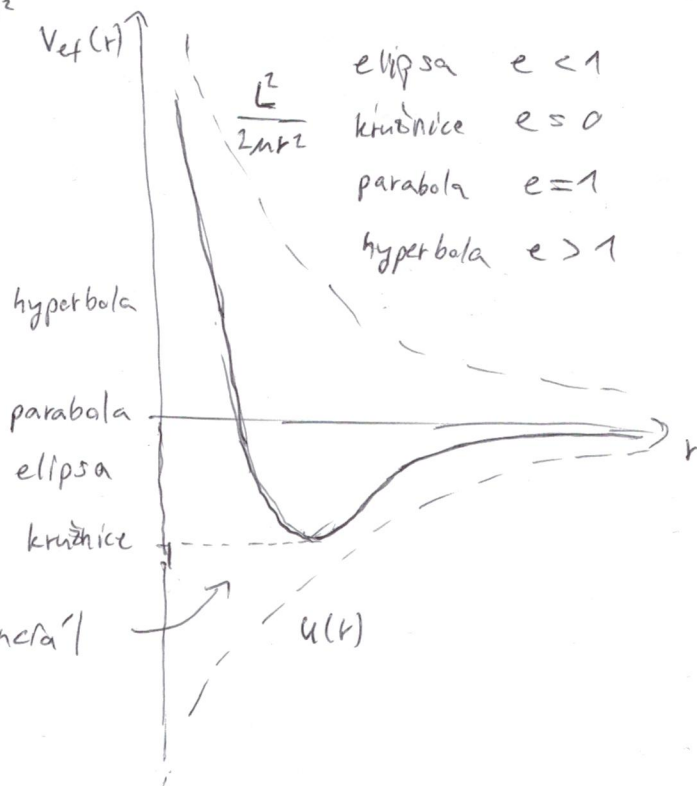 2
V_ef(r)
L²
2μr²
elipsa e < 1
kružnice e = 0
parabola e = 1
hyperbola e > 1
hyperbola
parabola
r
elipsa
kružnice
u(r)